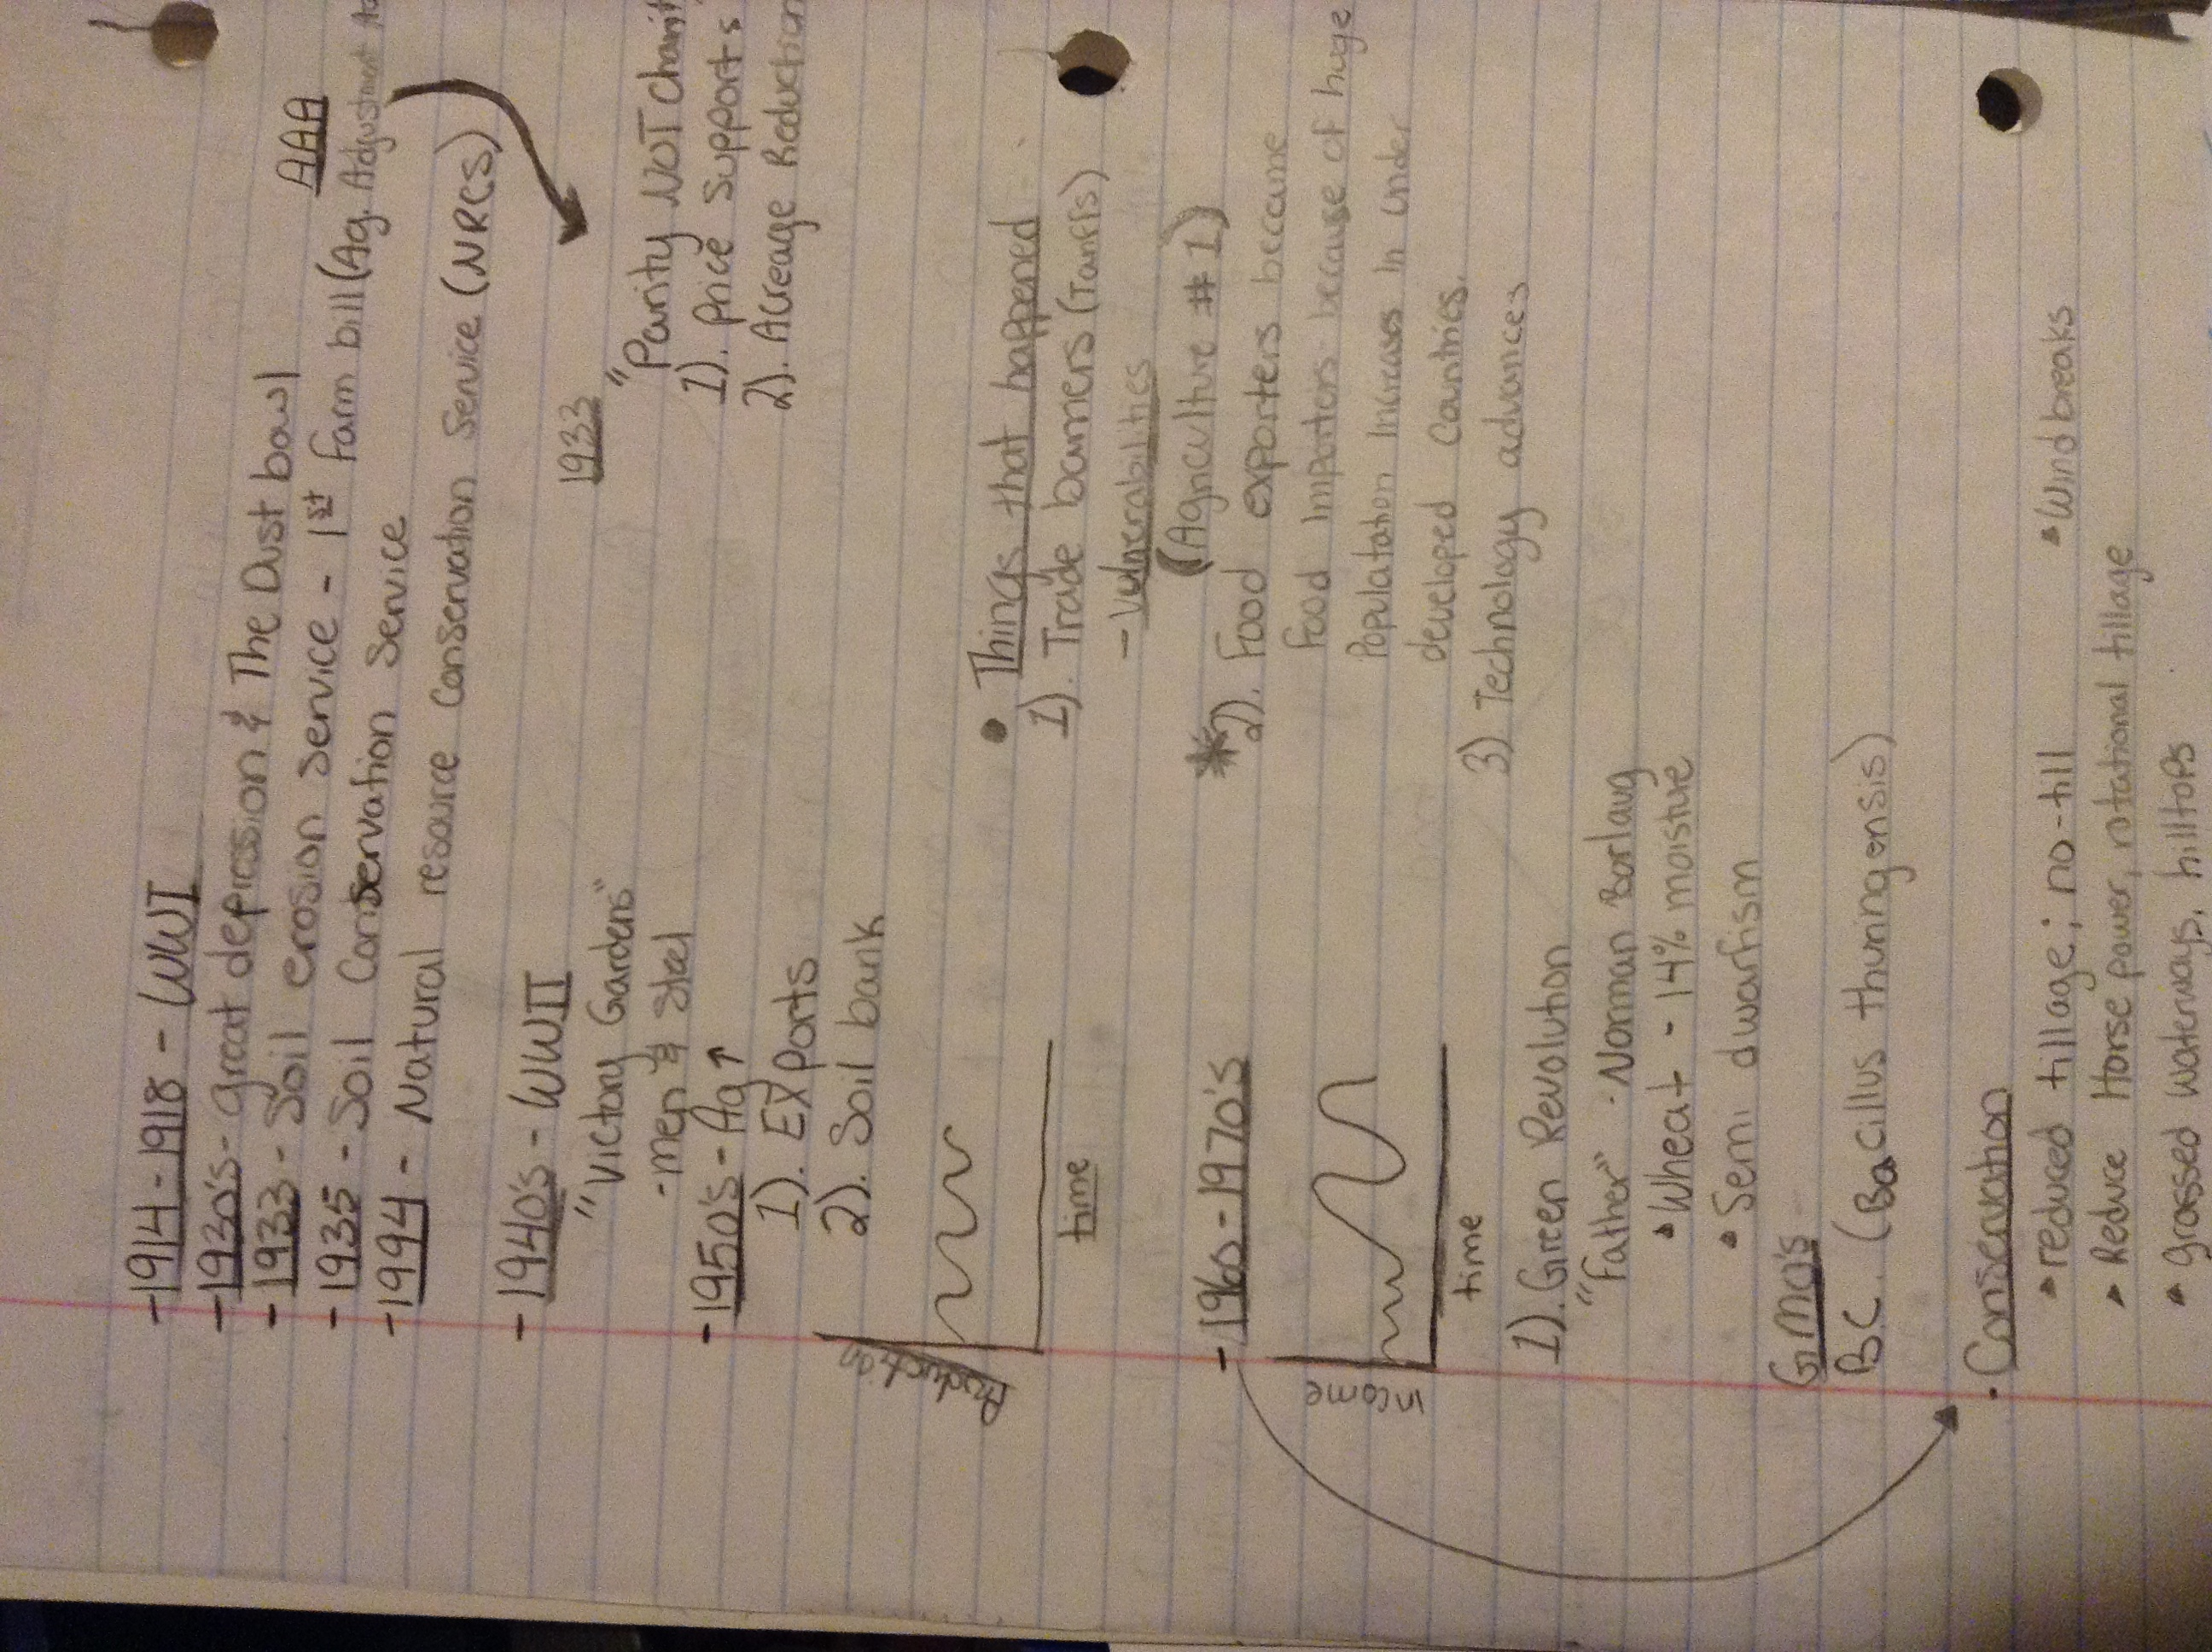 -1914-1918 - WWI
-1930's- great depression & The Dust bowl
AAA
-1933 - Soil erosion Service - 1st farm bill (Ag. Adjustment
-1935 - Soil Conservation Service
-1994 - Natural resource Conservation Service (NRCS)
1933
-1940's - WWII
"Victory Gardens"
-men & steel
"Parity NOT Charity
1). Price Supports
2). Acreage Reduction
-1950's - Ag↑
1). Exports
2). Soil bank
Production
time
• Things that happened
1). Trade barriers (Tariffs)
- Vulnerabilities
(Agriculture #1)
*2). Food exporters became
food importers because of huge
Population increases in under
developed Countries.
3) Technology advances
-1960-1970's
income
time
1). Green Revolution
"Father" - Norman Borlaug
• Wheat - 14% moisture
• Semi dwarfism
GMO's
BC. (Bacillus thuringensis)
• Conservation
• reduced tillage; no-till
• Windbreaks
• Reduce Horse power, rotational tillage
• grassed waterways, hilltops